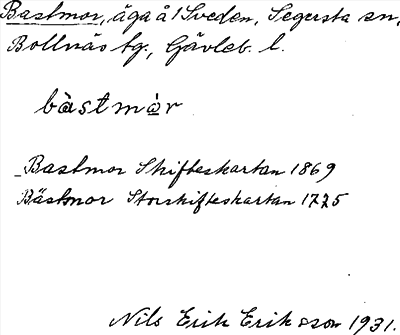 Bastmor, äga å 1 Sveden, Segersta sn,
Bollnäs tg., Gävleb. l.
bàstmòr
Bastmor Skifteskartan 1869
Bästmor Storskifteskartan 1775
Nils Erik Eriksson 1931.